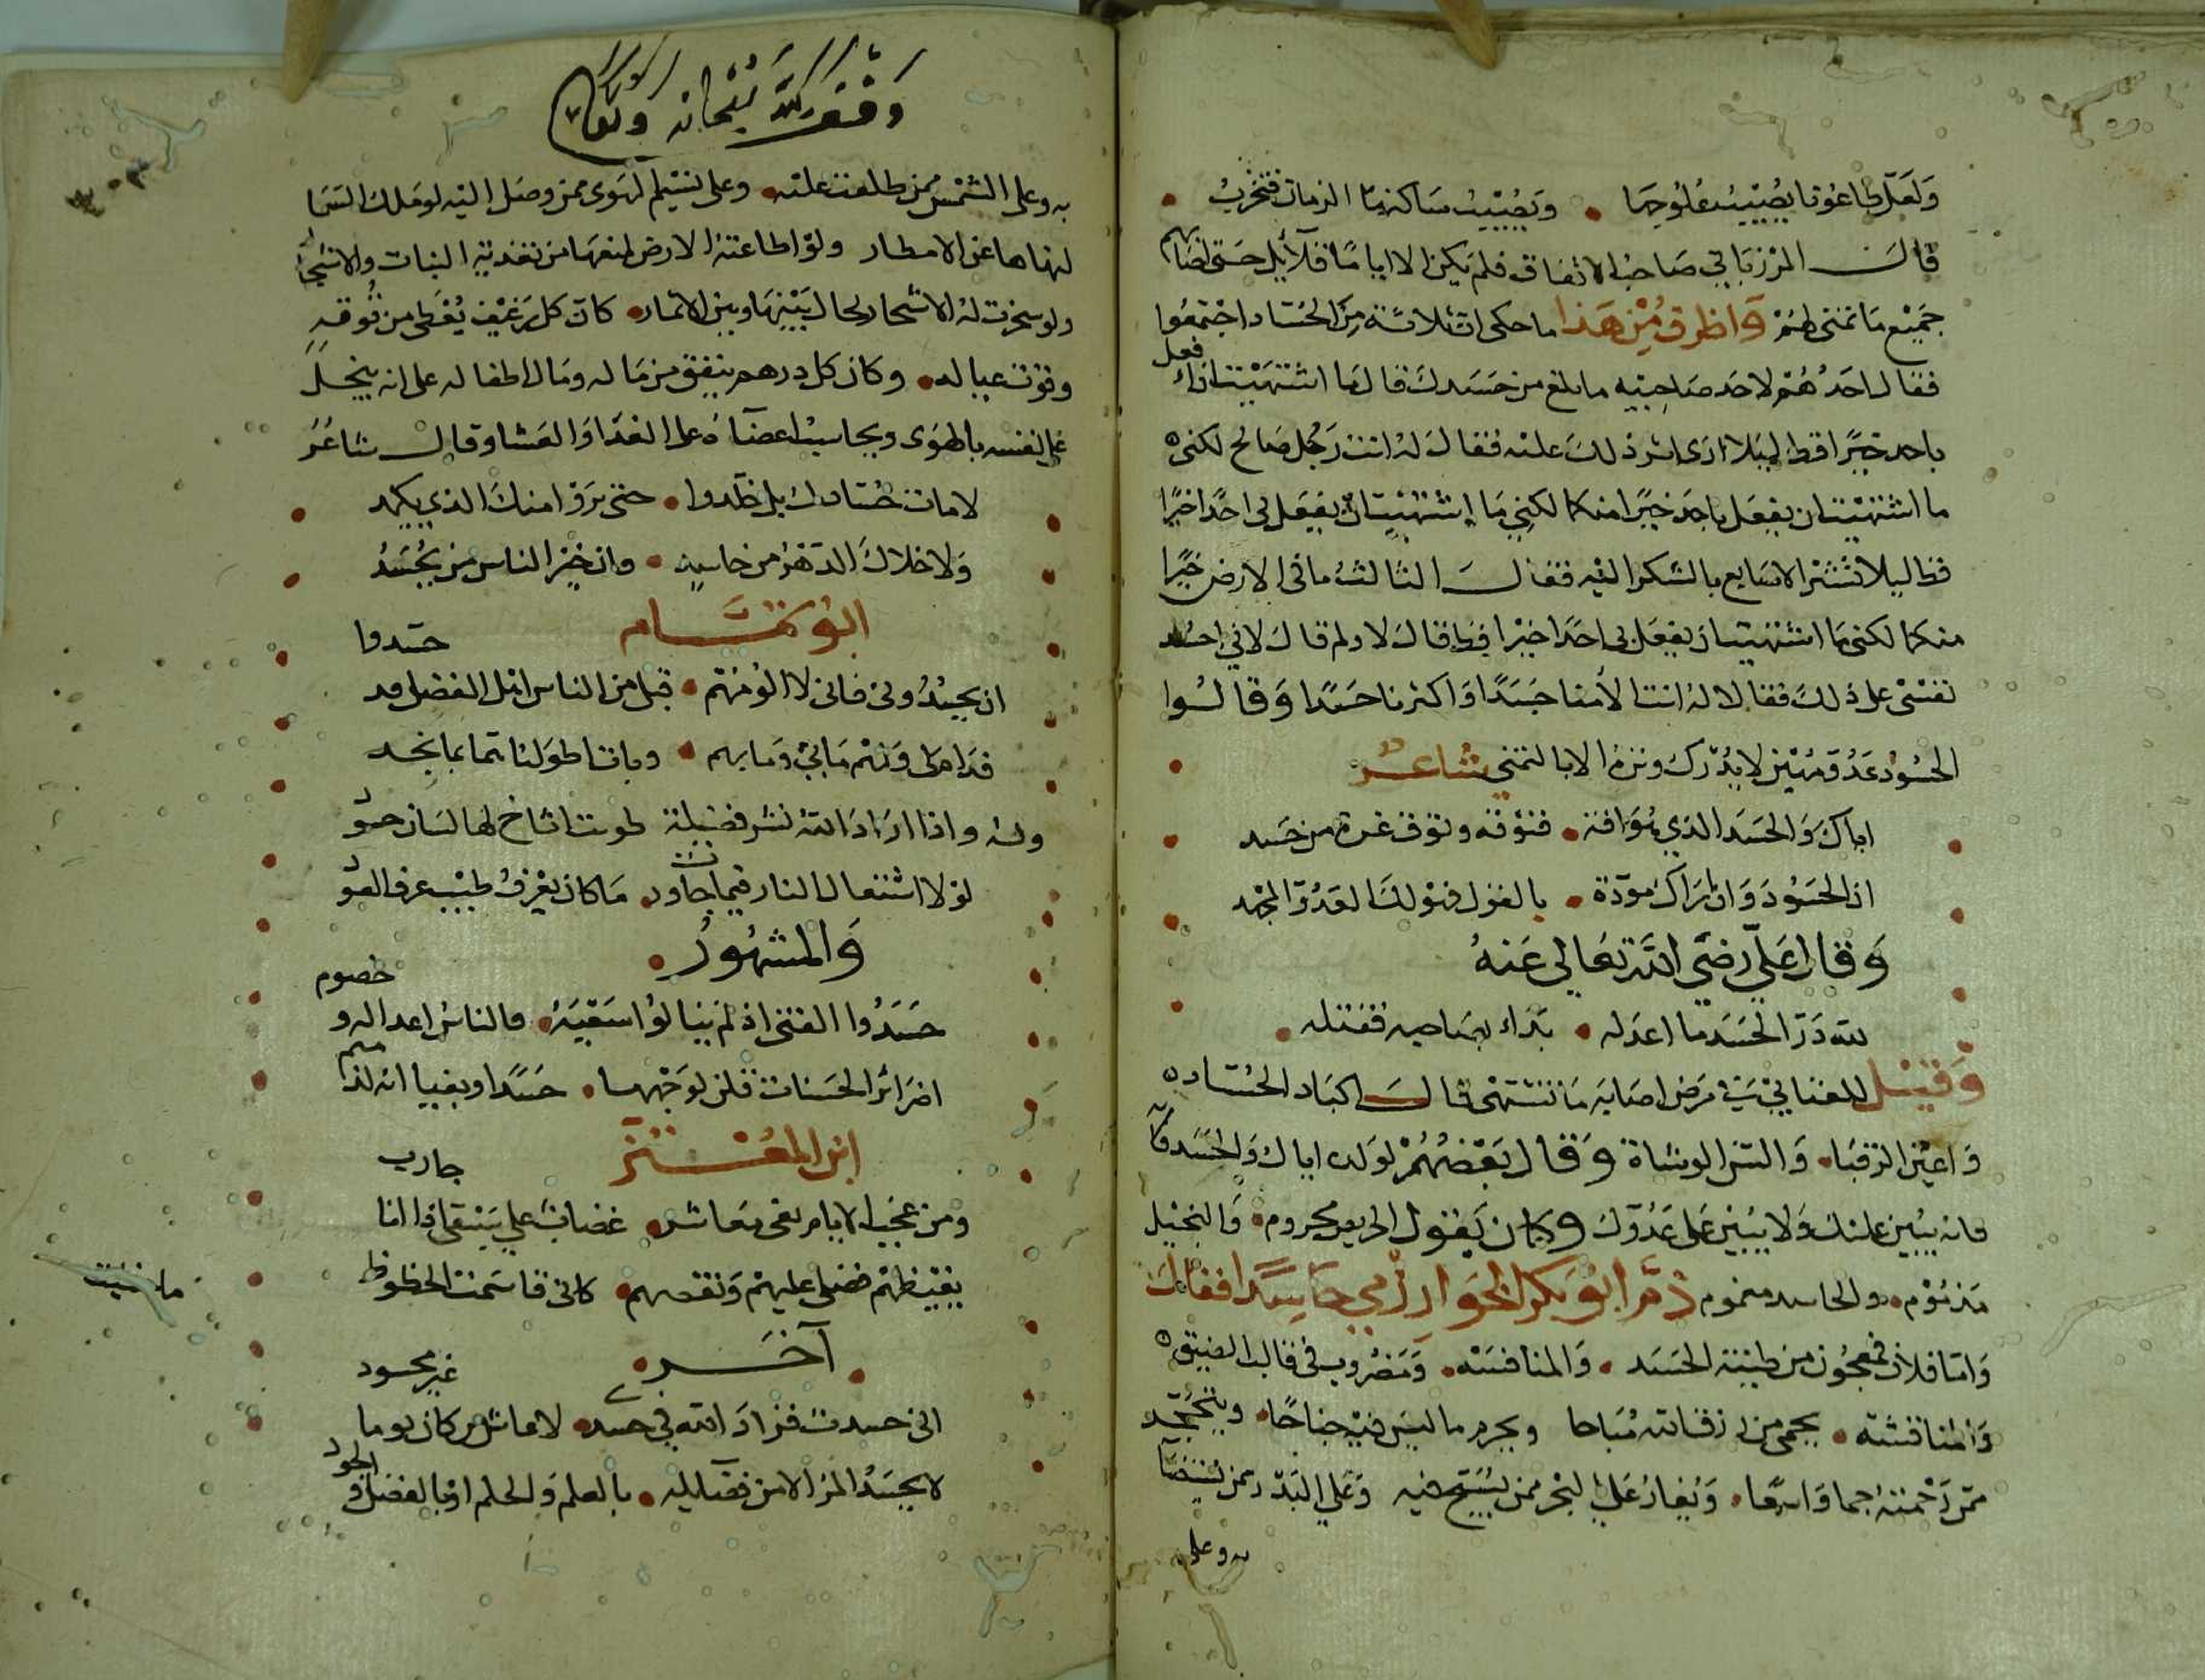 ولعل طاعونا يصيب علوجها • ويصيب ساكنها الزمان فتخرب •
قال المرزباني صاحب الاتفاق فلم يكن الا اياما قلائل حتى اصابهم
جميع ما تمنى لهم واظرف من هذا ما حكى ان ثلاثة من الحساد اجتمعوا
فقال احدهم لاحد صاحبيه ما بلغ من حسدك قال ما اشتهيت ان افعل
باحد خيرا قط ليلا ارى اثر ذلك عليه فقال له انت رجل صالح لكني
ما اشتهيت ان يفعل باحد خيرا منكما لكني ما اشتهيت ان يفعل بي احد خيرا
قط ليلا تشير الاصابع بالشكر اليه فقال الثالث ما في الارض خيرا
منكما لكني ما اشتهيت ان يفعل بي احدا خيرا قط قال لا ولم قال لاني احسد
نفسي على ذلك فقالا له انت الأمنا حسدا واكثرنا حسدا وقالوا
الحسود عدو مهين لا يدرك وتره الا بالتمني شاعر
اياك والحسد الذي هو افة • فتوقه وتوق غرة من حسد
ان الحسود وان اراك مودة • بالقول فهو لك العدو المجهد
وقال علي رضي الله تعالى عنه
لله در الحسد ما اعدله • بداء بصاحبه فقتله •
وقيل للعتابي في مرض اصابه ما تشتهي قال اكباد الحساد
واعين الرقبا • والسن الوشاة وقال بعضهم لولده اياك والحسد
فانه يبين عليك ولا يبين على عدوك وكان يقول الحريص محروم • والبخيل
مذموم • والحاسد مغموم ذم ابو بكر الخوارزمي حاسدا فقال
واما فلان فمعجون من طينة الحسد • والمنافسة • ومضروب في قالب الضيق
والمناقشة • يحمي من ارزقاته مباحا ويحرم ما ليس فيه جناحا • ويتحجر
من رحمته جما واسعا • ويغار على البحر ممن يسبح فيه وعلى البدر ممن يستضا
به وعلى
وقف لله سبحانه وتعالى
به وعلى الشمس ممن طلعت عليه • وعلى نسيم الهوى ممن وصل اليه لو ملك السما
لنهاها عن الامطار ولو اطاعته الارض لمنعها من تغذية النبات والاشجار
ولو سخرت له الاشجار لحال بينها وبين الاثمار • كان كل رغيف يعطى من قوته
وقوت عياله • وكان كل درهم ينفق من ماله ومال اطفاله على انه يبخل
على نفسه بالهوى ويحاسب اعضاه على الغدا والعشا وقال شاعر
لا مات حسادك بل خلدوا • حتى يروا منك الذي يكمد
ولا خلاك الدهر من حاسد • وان خير الناس من يحسد
ابو تمام
ان يحسدوني فاني لا الومهم • قبلي من الناس اهل الفضل قد حسدوا
فدام لي ولهم ما بي وما بهم • ومات اطولنا غما بما يجد
وله واذا اراد الله نشر فضيلة طويت اتاح لها لسان حسود
لولا اشتعال النار فيما جاورت • ما كان يعرف طيب عرف العود
والمشهور •
حسدوا الفتى اذ لم ينالوا سعيه • فالناس اعدا له وخصوم
كضرائر الحسنات قلن لوجهها • حسدا وبغيا انه لذميم
ابن المعتز
ومن عجب الايام بغى معاشر • غضاب على سبقى اذا انا جاريت
يغيظهم فضلي عليهم ونقصهم • كاني قاسمت الحظوظ
ما شئت
آخر •
اني حسدت فزاد الله في حسدي • لا عاش من كان يوما غير محسود
لا يحسد المرء الا من فضايله • بالعلم والحلم او بالفضل والجود